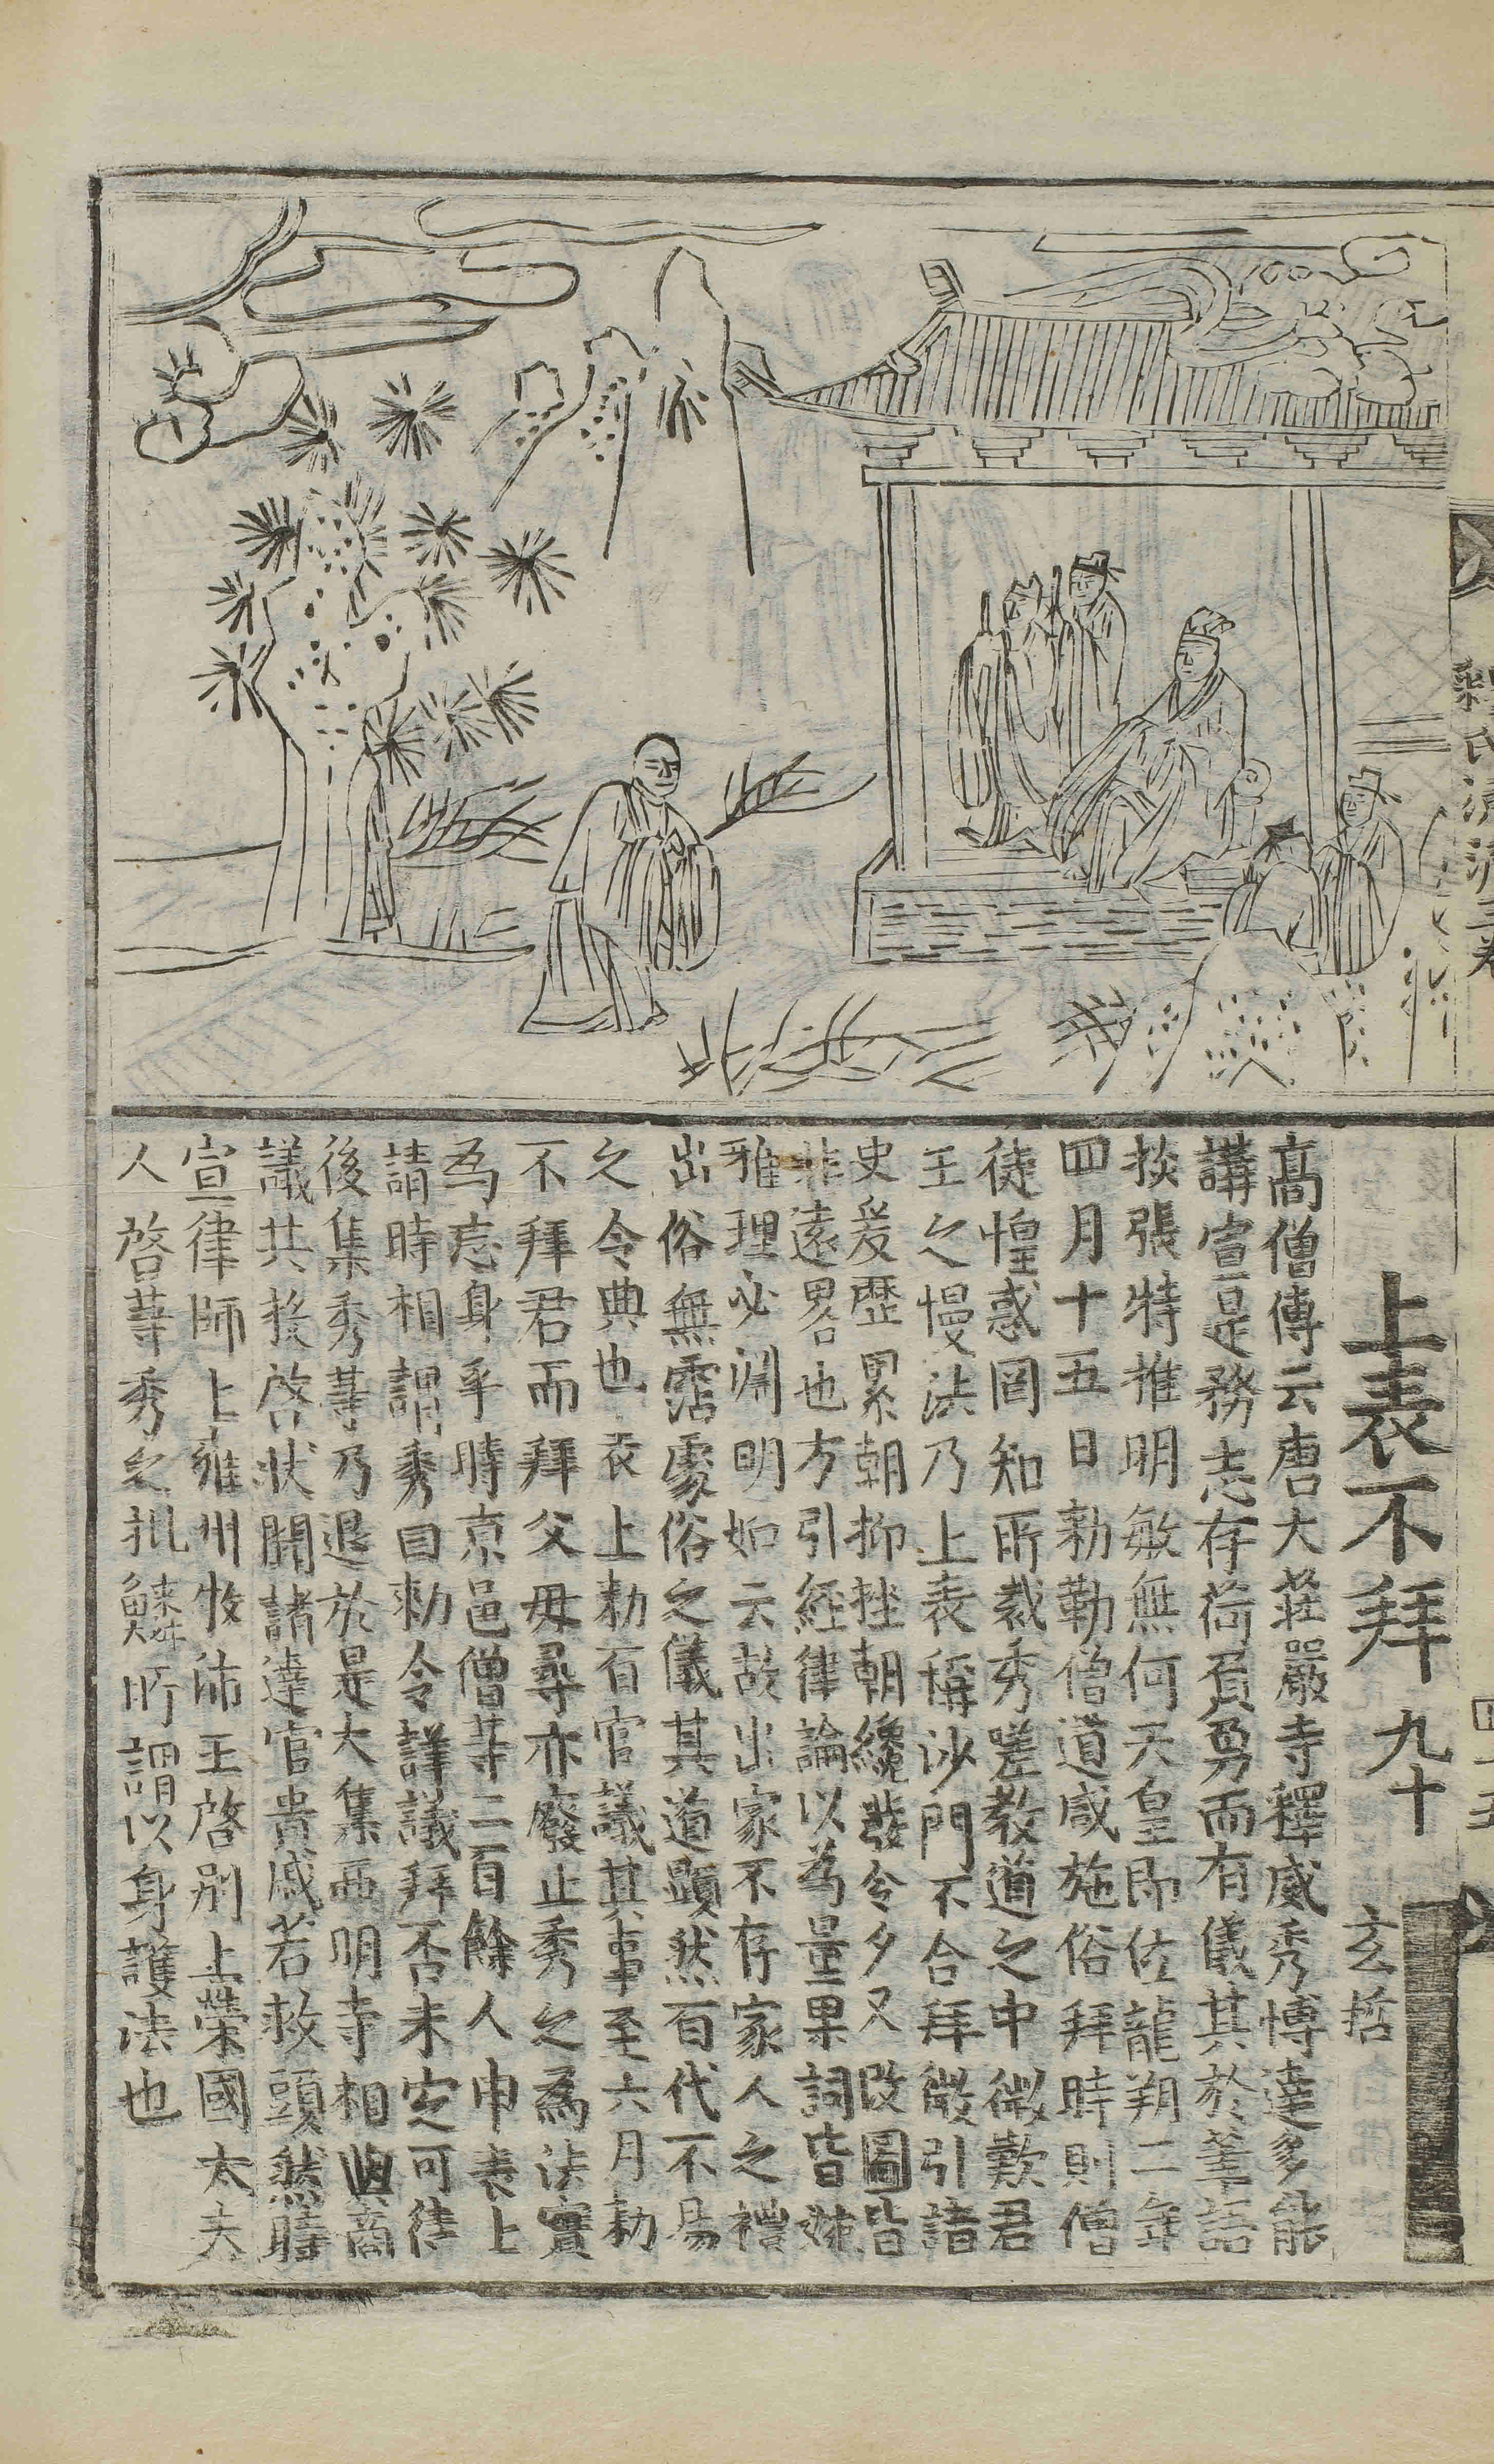 釋氏源流三卷
上表不拜 九十 玄哲
高僧傳云唐大莊嚴寺釋威秀博達多能
講宣是務志存荷負勇而有儀其於筆語
掞張特推明敏無何天皇即位龍朔二年
四月十五日勑勒僧道咸施俗拜時則僧
徒惶惑罔知所裁秀嗟教道之中微歎君
王之慢法乃上表稱沙門不合拜徵引諸
史爰歷累朝抑挫朝纔發令夕又改圖皆
非遠畧也方引經律論以為量果詞皆婉
雅理必淵明如云故出家不存家人之禮
出俗無霑處俗之儀其道顯然百代不易
之令典也表上勑百官議其事至六月勑
不拜君而拜父母尋亦廢止秀之為法實
為忘身乎時京邑僧等二百餘人申表上
請時相謂秀曰勑令詳議拜否未定可待
後集秀等乃退於是大集西明寺相與商
議共投啓狀聞諸達官貴戚若救頭然時
宣律師上雍州牧沛王啓別上榮國太夫
人啓等秀之批鱗所謂以身護法也